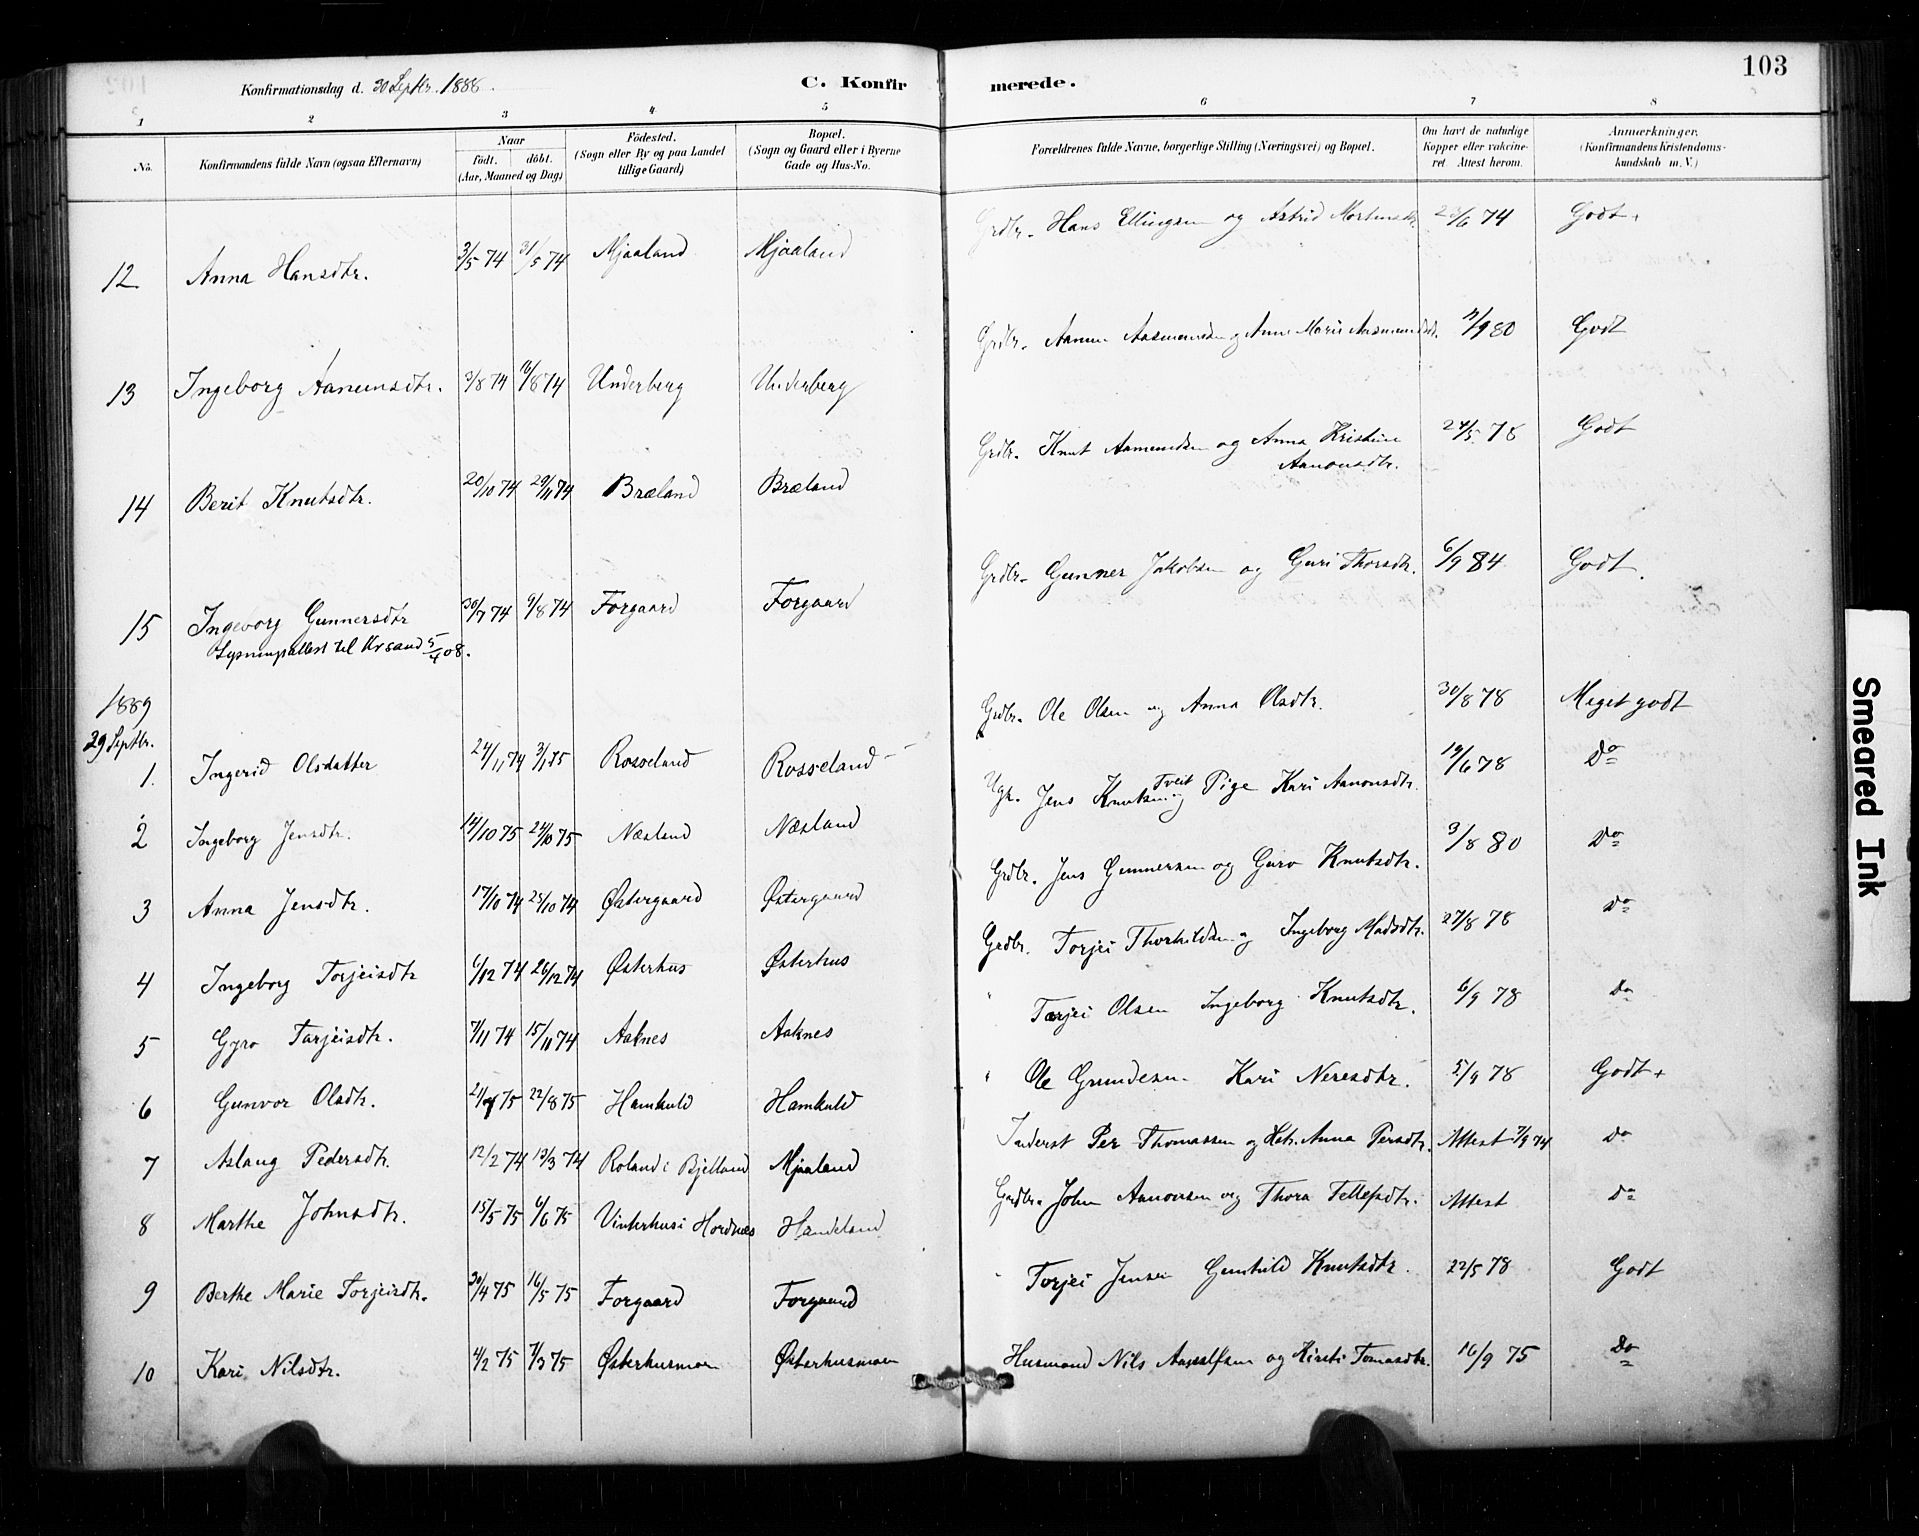 103
Konfirmationsdag d. 30 Septbr. 1888.
C. Konfirmerede.
1 2 3 4 5 6 7 8
No.
Konfirmandens fulde Navn (ogsaa Efternavn)
Naar
födt. döbt.
(Aar, Maaned og Dag)
Födested.
(Sogn eller By og paa Landet
tillige Gaard)
Bopæl.
(Sogn og Gaard eller i Byerne
Gade og Hus-No.
Forældrenes fulde Navne, borgerlige Stilling (Næringsvei) og Bopæl.
Om havt de naturlige
Kopper eller vakcine-
ret Attest herom.
Anmærkninger.
(Konfirmandens Kristendoms-
kundskab m. V.)
12 Anna Hansdtr. 3/5 74 31/5 74 Mjaaland Mjaaland Grdbr. Hans Ellingsen og Astrid Mortensdtr. 23/6 74 Godt+
13 Ingeborg Aanensdtr. 3/8 74 16/8 74 Underberg Underberg Grdbr. Aanen Aasmundsen og Anne Marie Aasmundsdtr. /9 80 Godt
14 Berit Knutsdtr. 20/10 74 29/11 74 Bræland Bræland Grdbr. Knut Aamundsen og Anna Kristine
Aanonsdtr. 24/5 78 Godt
15 Ingeborg Gunnersdtr 30/7 74 9/8 74 Forgaard Forgaard Grdbr. Gunner Jakobsen og Guri Thorsdtr. 6/9 84 Godt.
Lysningsattest til Krsand 5/4 08.
1889
29 Septbr.
1. Ingerid Olsdatter 24/11 74 3/1 75 Rosseland Rosseland Grdbr. Ole Olsen og Anna Olsdtr. 30/8 78 Meget godt
2 Ingeborg Jensdtr. 14/10 75 24/10 75 Næsland Næsland Ugk. Jens Knutsen Tveit og Pige Kari Aanonsdtr. 19/6 78 Do
3 Anna Jensdtr. 17/10 74 25/10 74 Østergaard Østergaard Grdbr. Jens Gunnersen og Guro Knutsdtr. 3/8 80 Do
4 Ingeborg Torjeisdtr 6/12 74 26/12 74 Østerhus Østerhus Grdbr. Torjei Thorkildsen og Ingeborg Madsdtr. 27/8 78 Do
5 Gyro Tarjeisdtr. 7/11 74 15/11 74 Aaknes Aaknes " Tarjei Olsen Ingeborg Knutsdtr. 6/9 78 Do
6 Gunvor Olsdtr. 75 22/8 75 Hamkuld Hamkuld " Ole Grundesen. Kari Neresdtr. 5/9 78 Godt+
7 Aslaug Pedersdtr. 12/2 74 13/3 74 Roland i Bjelland Mjaaland Inderst Per Thomassen og Hstr. Anna Persdtr. Attest 7/9 74 Do
8 Marthe Johnsdtr. 15/5 75 6/6 75 Vinterhus i Hordnes Handeland Grdbr. John Aanonsen og Thora Tellefsdtr. Attest Do
9 Berthe Marie Torjeisdtr. 30/4 75 16/5 75 Forgaard Forgaard " Torjei Jensen Gunhild Knutsdtr. 22/5 78 Godt
10 Kari Nilsdtr. 4/2 75 7/3 75 Østerhusmoen Østerhusmoen Husmand Nils Aanulfsen og Kirsti Tomasdtr. 16/9 75 Do
Smeared Ink